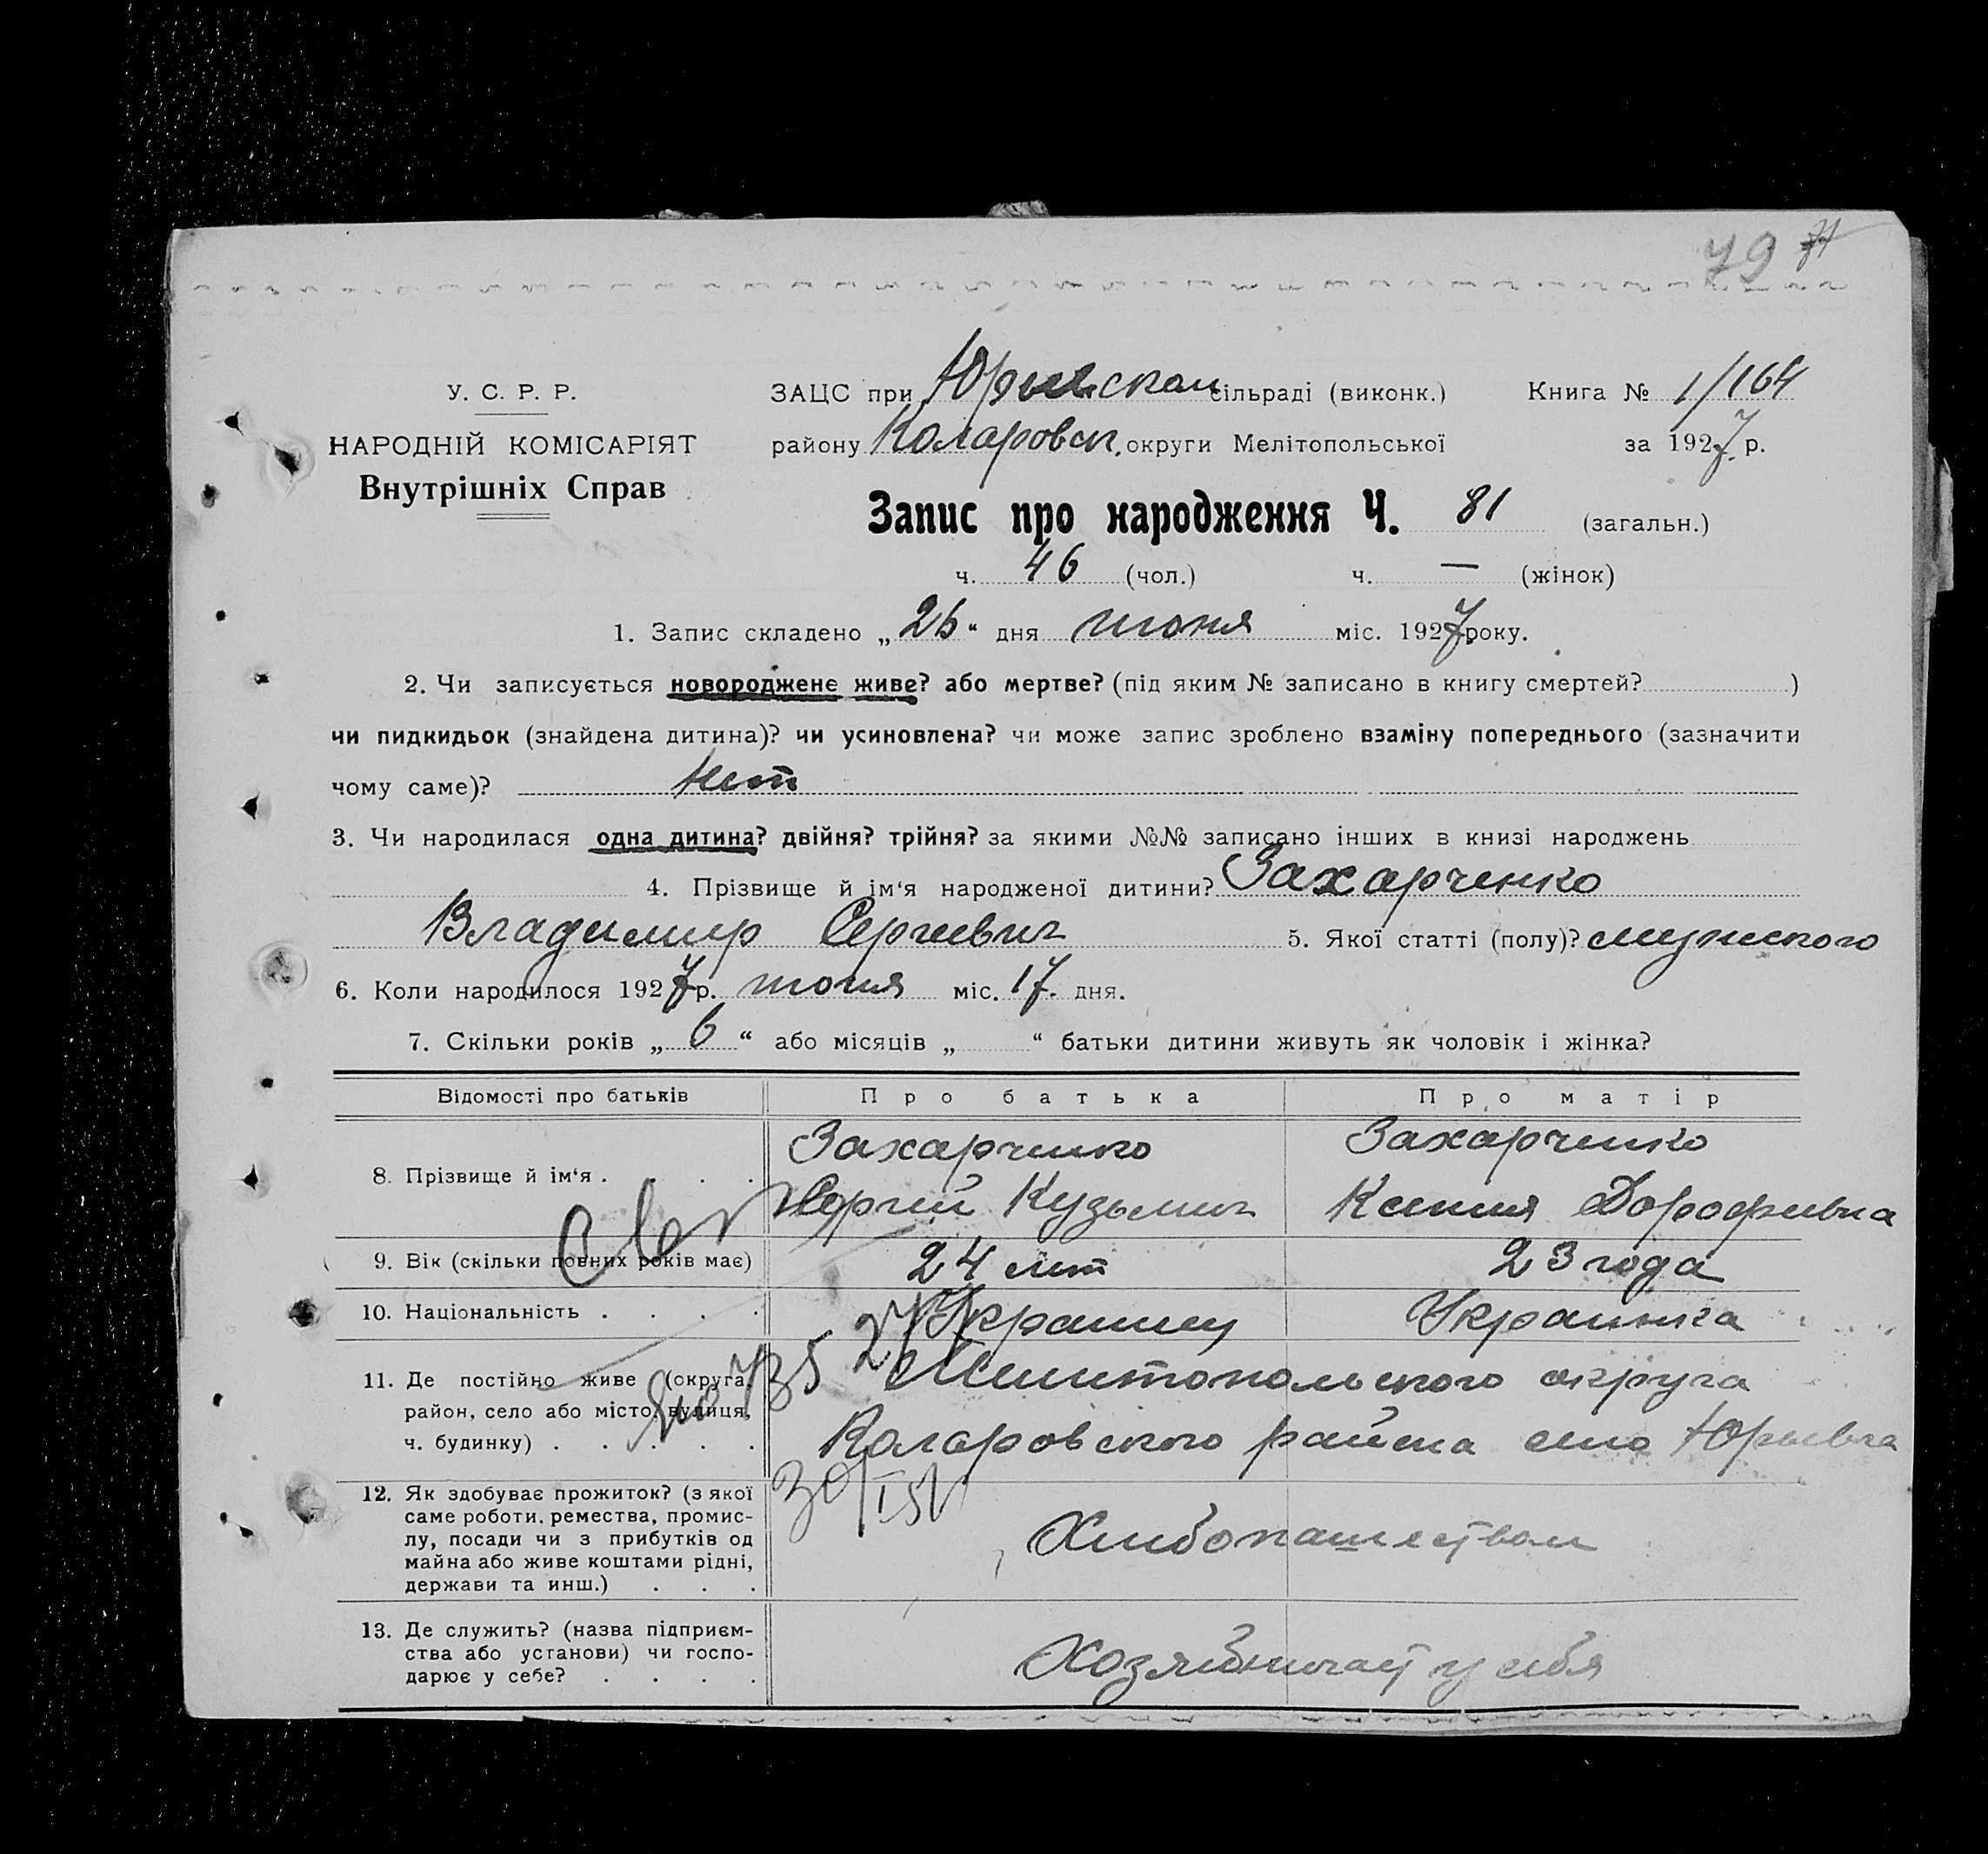 79 71
У. С. Р. Р.
НАРОДНІЙ КОМІСАРІЯТ
Внутрішніх Справ
ЗАЦС при Юрьевском сільраді (виконк.)
району Коларовск. округи Мелітопольської
Книга № 1/164
за 1927 р.
Запис про народження Ч. 81 (загальн.)
ч. 46 (чол.) ч. — (жінок)
1. Запис складено „26“ дня июня міс. 1927 року.
2. Чи записується новороджене живе? або мертве? (під яким № записано в книгу смертей? )
чи пидкидьок (знайдена дитина)? чи усиновлена? чи може запис зроблено взаміну попереднього (зазначити
чому саме)? Нет
3. Чи народилася одна дитина? двійня? трійня? за якими №№ записано інших в книзі народжень
4. Прізвище й ім‘я народженої дитини? Захарченко
Владимир Сергеевич 5. Якої статті (полу)? мужского
6. Коли народилося 1927 р. июня міс. 17 дня.
7. Скільки років „ 6 “ або місяців „ “ батьки дитини живуть як чоловік і жінка?
Відомості про батьків Про батька Про матір
8. Прізвище й ім‘я . . . . Захарченко Захарченко
Сергий Кузьмич Ксения Дорофеевна
9. Вік (скільки повних років має) 24 лет 23 года
10. Національність . . . . Украинец Украинка
11. Де постійно живе (округа, Мелитопольского округа
район, село або місто, вулиця,
ч. будинку) . . . . . Коларовского района село Юрьевка
30/I 51
12. Як здобуває прожиток? (з якої
саме роботи, ремества, промис-
лу, посади чи з прибутків од
майна або живе коштами рідні,
держави та инш.) . . .
Хлебопашеством
13. Де служить? (назва підприєм-
ства або установи) чи госпо-
дарює у себе? . . . .
Хозяйничает у себя